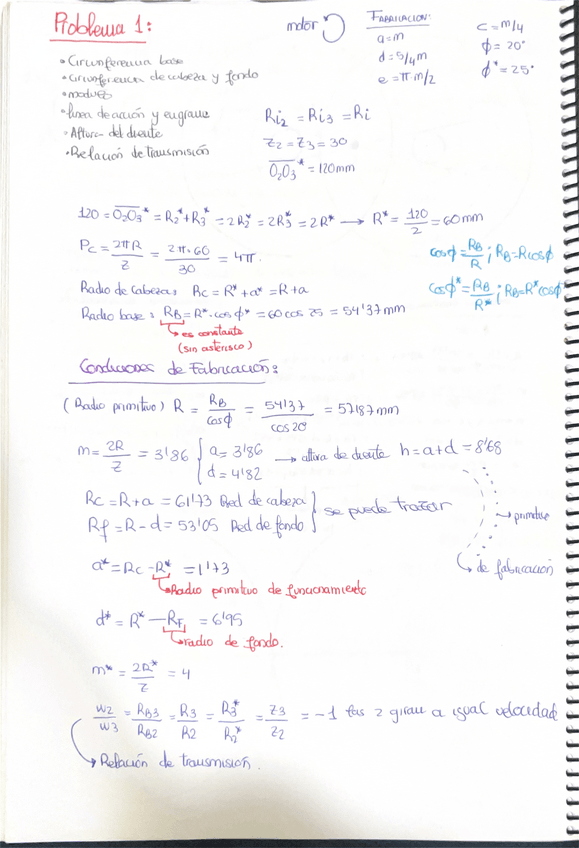 Problema 1:
motor
FABRICACIÓN:
a=m
d=5/4m
e=πm/2
c=m/4
ϕ=20°
ϕ*=25°
• Circunferencia base
• circunferencia de cabeza y fondo
• modulo
• linea de acción y engrane
• Altura del diente
• Relación de transmisión
Ri2 = Ri3 = Ri
Z2=Z3=30
O2O3* = 120mm
120 = O2O3* = R2*+R3* = 2R2* = 2R3* = 2R* → R* = 120/2 = 60mm
Pc = 2πR/Z = 2π·60/30 = 4π.
cosϕ = RB/R ; RB=Rcosϕ
Radio de cabeza: Rc = R*+a* = R+a
cosϕ* = RB/R* ; RB=R*cosϕ*
Radio base: RB=R*·cosϕ* = 60cos25 = 54'37mm
es constante
(sin asterisco)
Condiciones de Fabricación:
(Radio primitivo) R = RB/cosϕ = 54'37/cos20 = 57'87mm
m = 2R/Z = 3'86 { a=3'86
d=4'82 → altura de diente h=a+d=8'68
Rc=R+a=61'73 Rad de cabeza
Rf=R-d=53'05 Rad de fondo } se puede trazar
→ primitivo
→ de fabricación
a*=Rc-R* = 1'73
Radio primitivo de funcionamiento
d*=R*-RF = 6'95
radio de fondo.
m*=2R*/Z = 4
w2/w3 = RB3/RB2 = R3/R2 = R3*/R2* = Z3/Z2 = -1 las 2 giran a igual velocidad
→ Relación de transmisión.